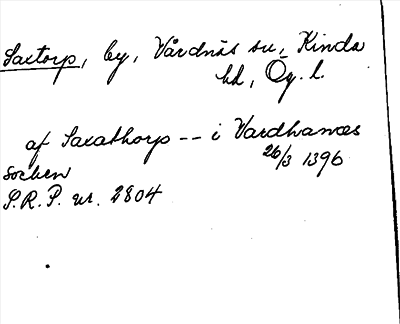 Saxtorp, by, Vårdnäs sn, Kinda
hd, Ög. l.
af Saxathorp -- i Vardhanæs
26/3 1396
socken
P.R.P. nr. 2804